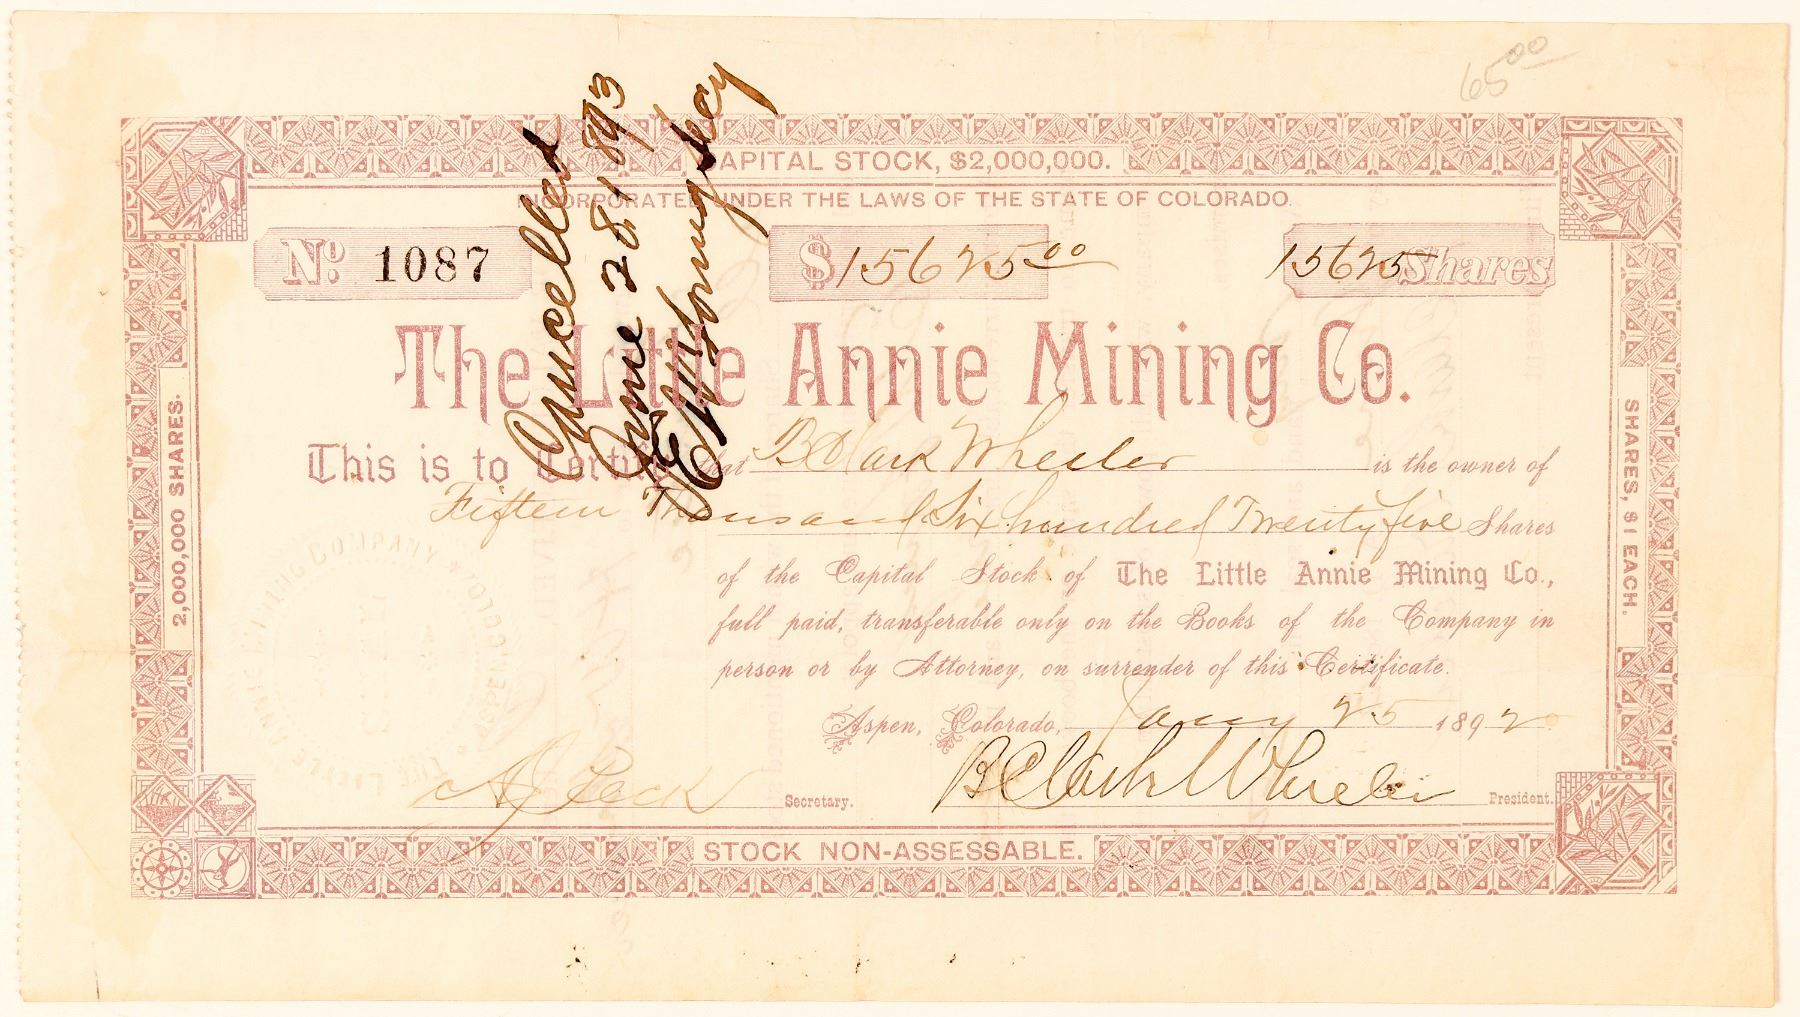 65 00
CAPITAL STOCK, $2,000,000.
INCORPORATED UNDER THE LAWS OF THE STATE OF COLORADO.
No. 1087 $15625 00 15625 Shares
The Little Annie Mining Co.
This is to Certify that B Clark Wheeler is the owner of
Fifteen Thousand Six hundred Twenty five Shares
of the Capital Stock of The Little Annie Mining Co.,
full paid, transferable only on the Books of the Company in
person or by Attorney, on surrender of this Certificate.
Aspen, Colorado, Jany 25 1892
A J Peck Secretary. B Clark Wheeler President.
STOCK NON-ASSESSABLE.
2,000,000 SHARES.
SHARES, $1 EACH.
Cancelled
June 28 1893
Secy
THE LITTLE ANNIE MINING COMPANY
ASPEN, COLO.